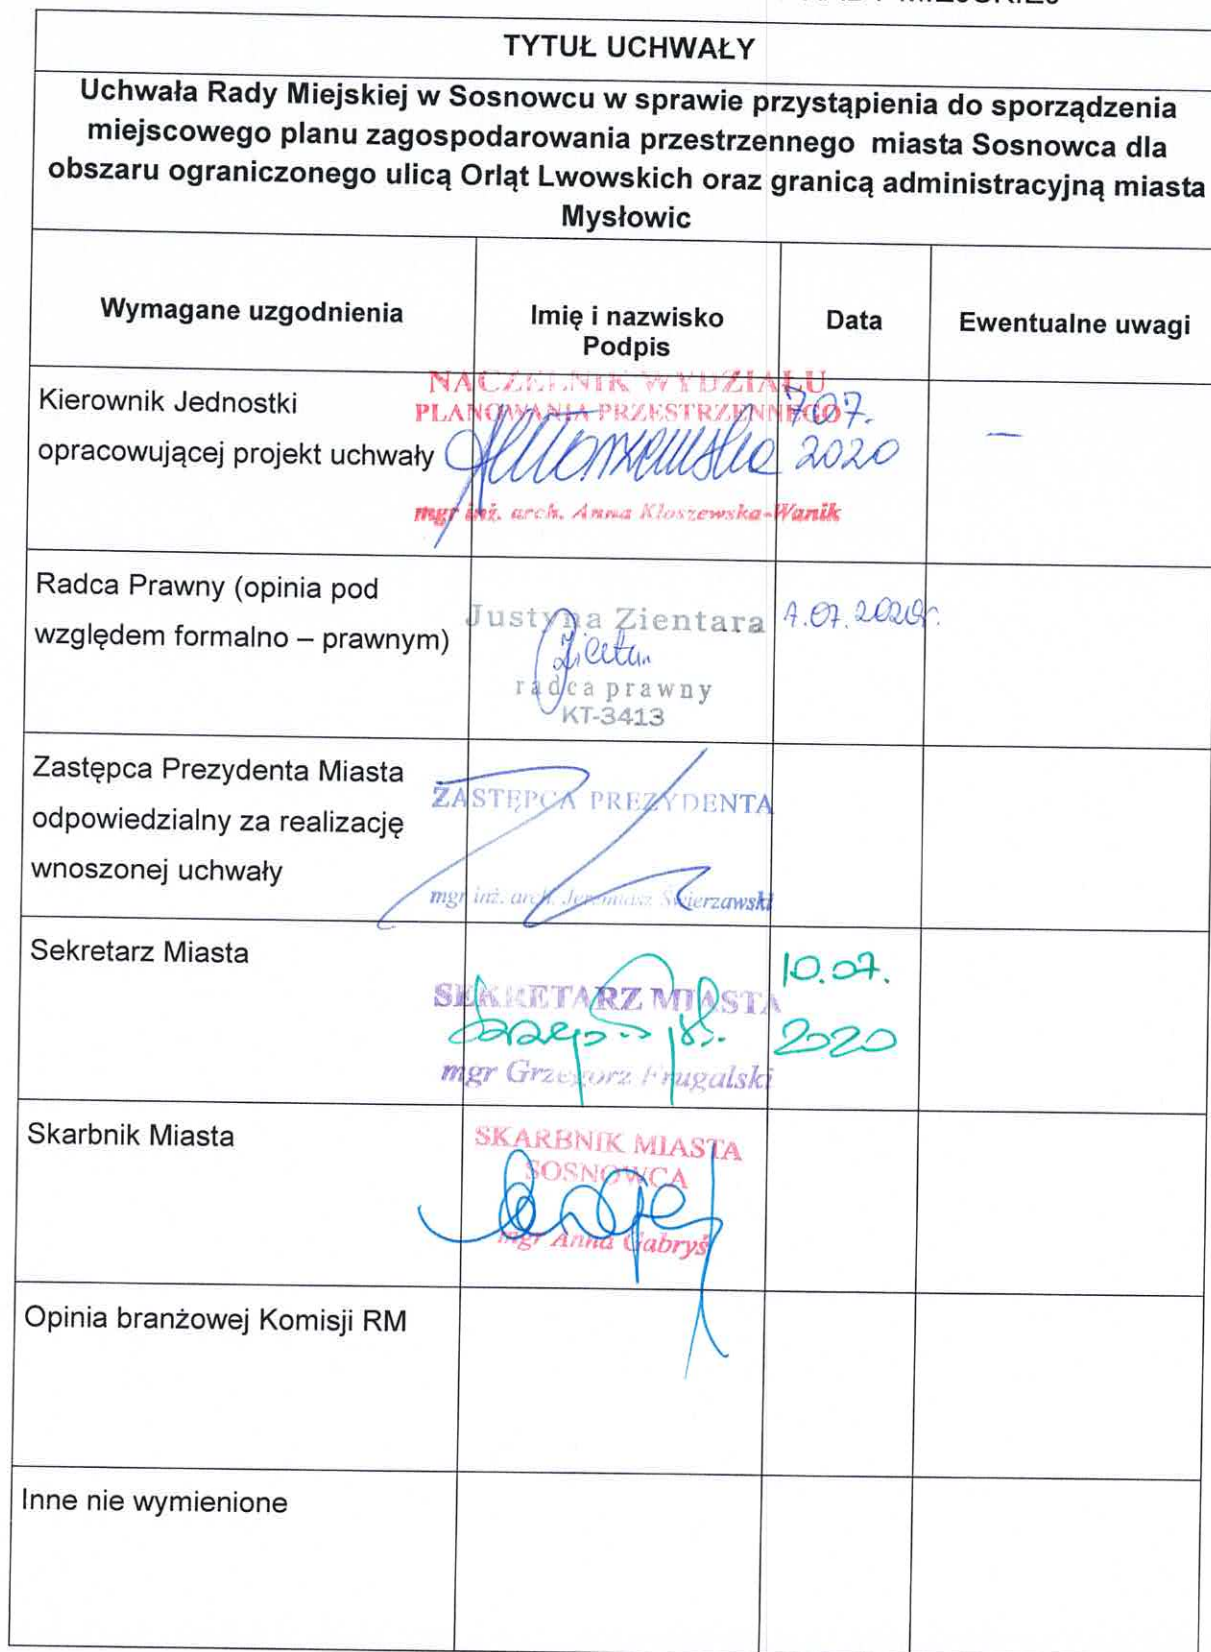 TYTUŁ UCHWAŁY
Uchwała Rady Miejskiej w Sosnowcu w sprawie przystąpienia do sporządzenia
miejscowego planu zagospodarowania przestrzennego miasta Sosnowca dla
obszaru ograniczonego ulicą Orląt Lwowskich oraz granicą administracyjną miasta
Mysłowic
Wymagane uzgodnienia
Imię i nazwisko
Podpis
Data
Ewentualne uwagi
Kierownik Jednostki
opracowującej projekt uchwały
NACZELNIK WYDZIAŁU
PLANOWANIA PRZESTRZENNEGO
mgr inż. arch. Anna Kloszewska-Wanik
7.07.
2020
—
Radca Prawny (opinia pod
względem formalno – prawnym)
Justyna Zientara
radca prawny
KT-3413
7.07.2020r.
Zastępca Prezydenta Miasta
odpowiedzialny za realizację
wnoszonej uchwały
ZASTĘPCA PREZYDENTA
mgr inż. arch. Jeremiasz Świerzawski
Sekretarz Miasta
SEKRETARZ MIASTA
mgr Grzegorz Frugalski
10.07.
2020
Skarbnik Miasta
SKARBNIK MIASTA
SOSNOWCA
mgr Anna Gabryś
Opinia branżowej Komisji RM
Inne nie wymienione